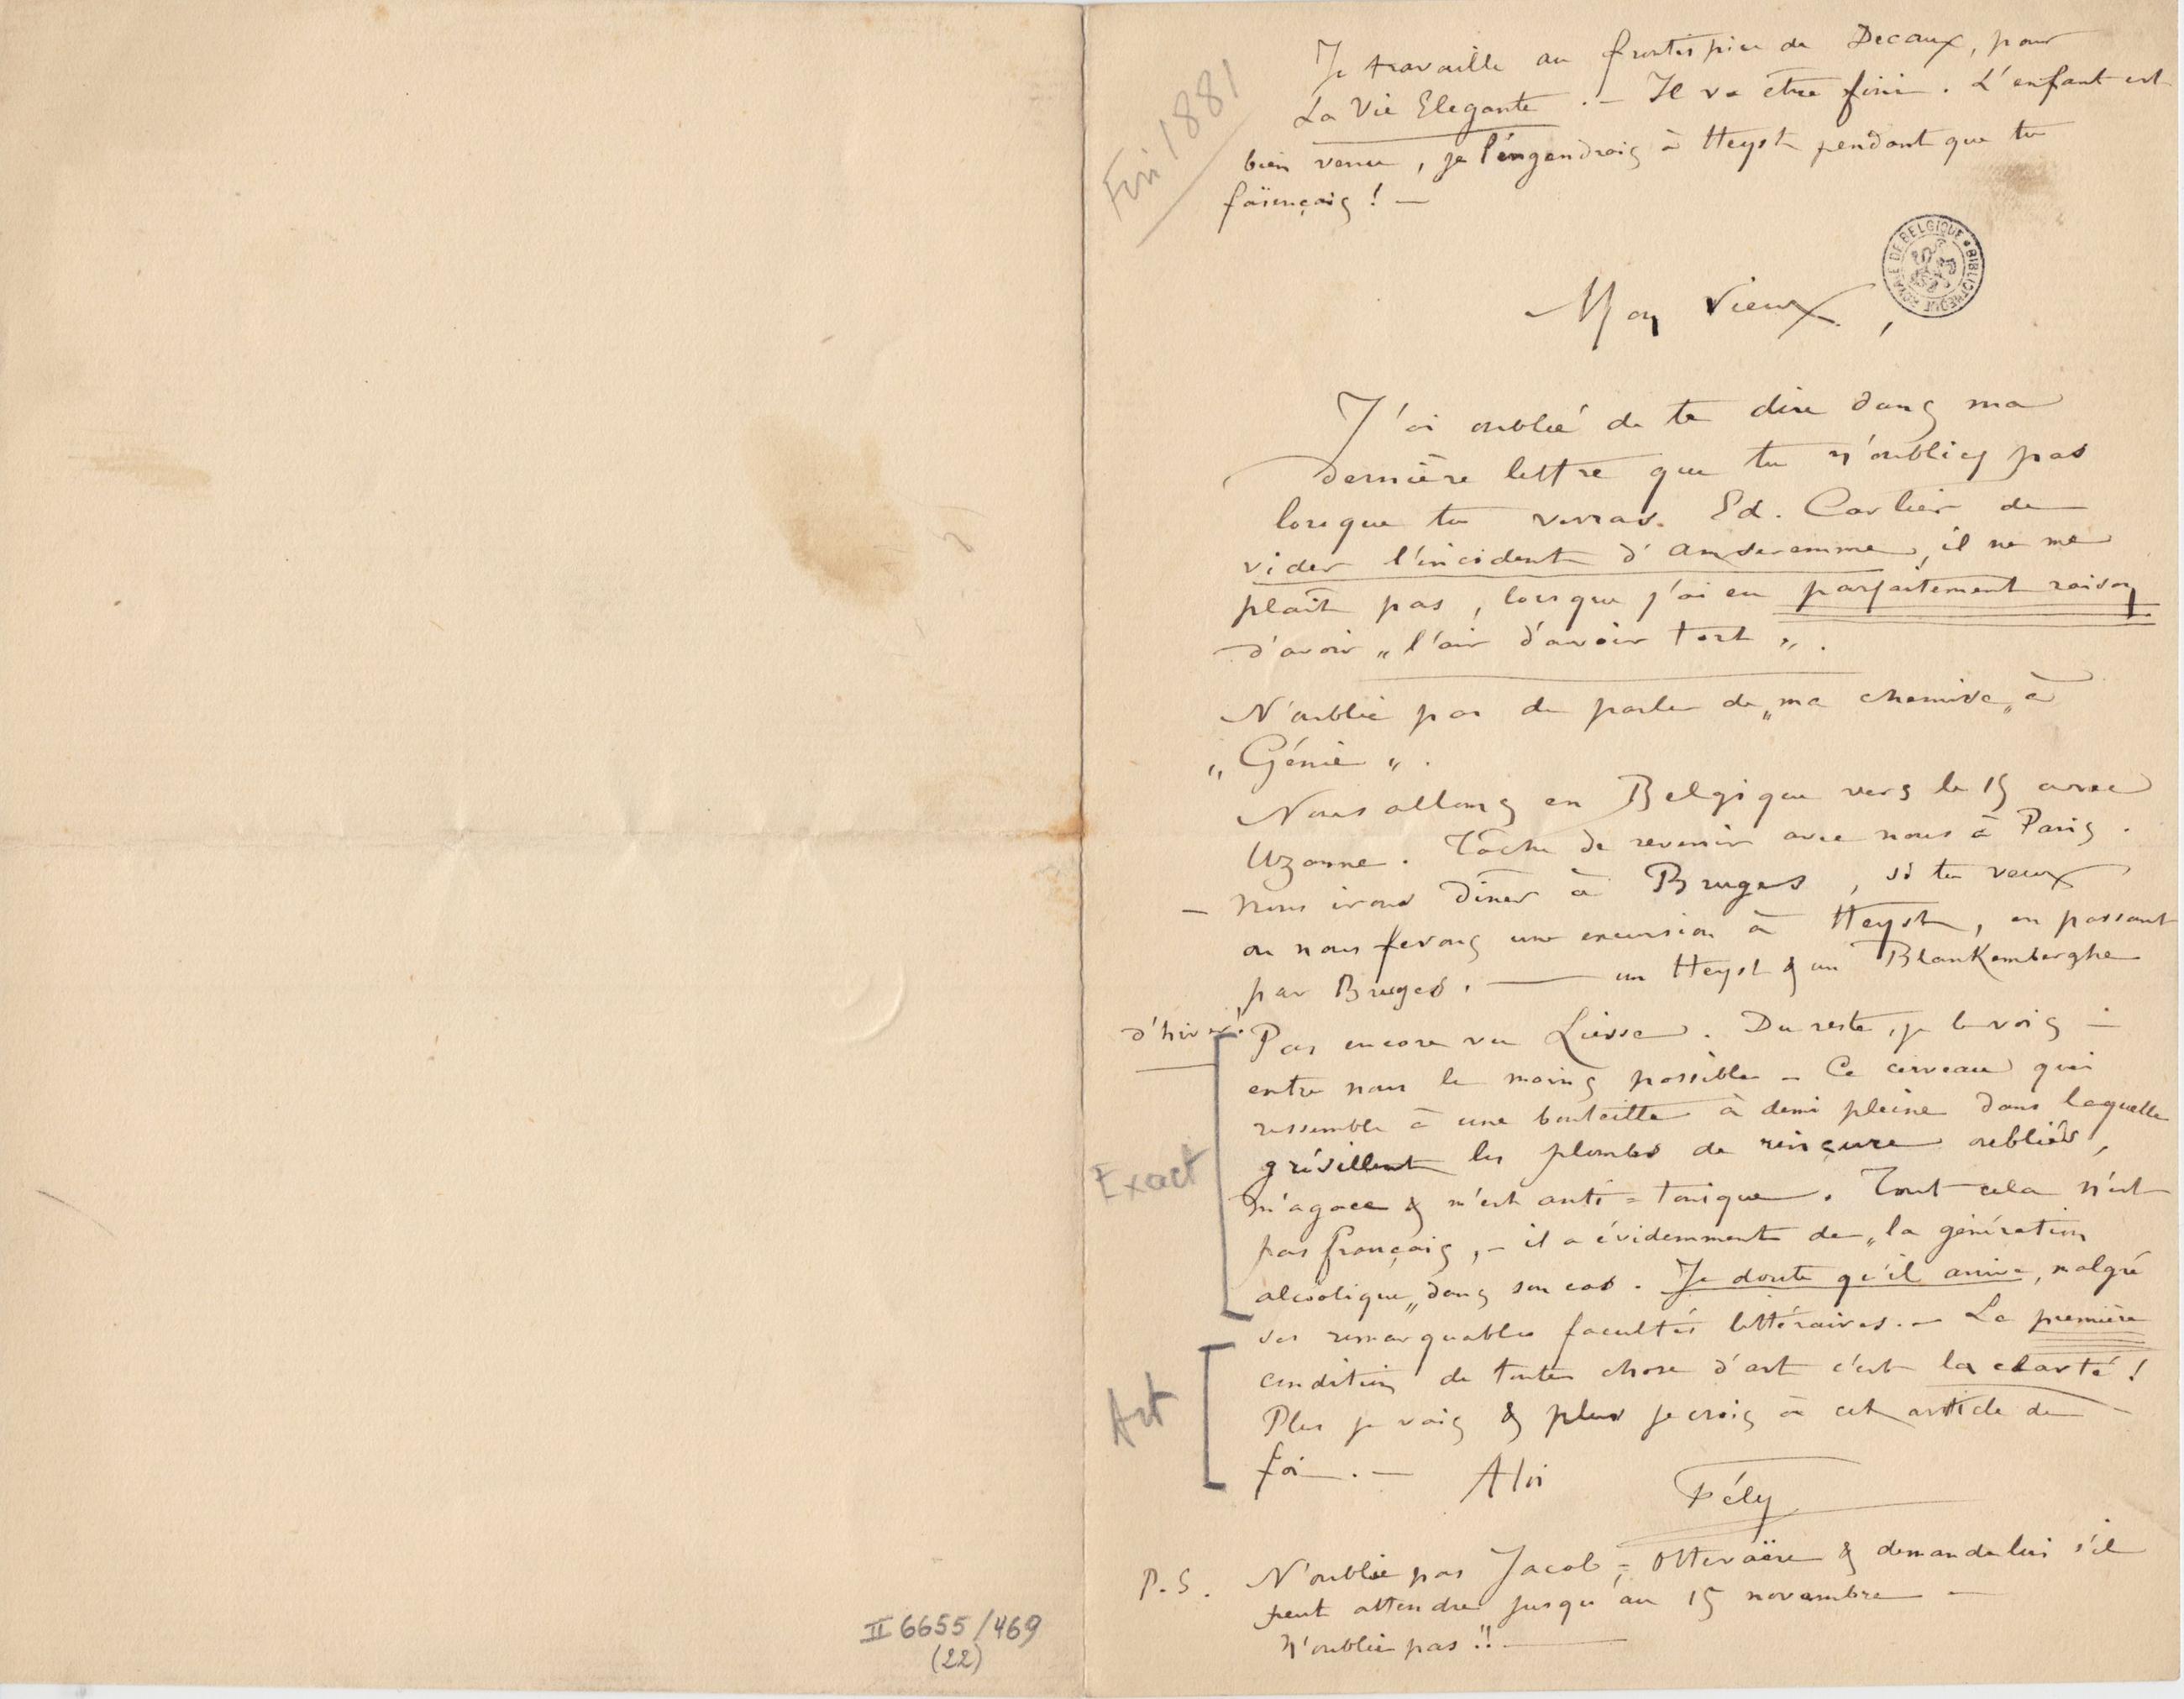 Je travaille au frontispice de Decaux, pour
La Vie Elegante. — Il va être fini. L'enfant est
bien venu, je l'engendrais à Heyst pendant que tu
faïençais ! —
Fin 1881
BIBLIOTHEQUE ROYALE DE BELGIQUE
Mon Vieux,
J'ai oublié de te dire dans ma
dernière lettre que tu n'oublies pas
lorsque tu verras Ed. Carlier de
vider l'incident d'Anseremme, il ne me
plait pas, lorsque j'ai eu parfaitement raison
d'avoir „ l'air d'avoir tort „.
N'oublie pas de parler de „ma chemise„ à
„ Génie „.
Nous allons en Belgique vers le 15 avec
Uzanne. Tâche de revenir avec nous à Paris.
— Nous irons diner à Bruges, si tu veux
ou nous ferons une excursion à Heyst, en passant
par Bruges. — un Heyst & un Blankemberghe
d'hiver!
Pas encore vu Liesse. Du reste, je le vois —
entre nous le moins possible — Ce cerveau qui
ressemble à une bouteille à demi pleine dans laquelle
grésillent les plombs de rinçure oubliés,
m'agace & m'est anti=tonique. Tout cela n'est
pas français, — il a évidemment de „la génération
alcoolique„ dans son cas. Je doute qu'il arrive, malgré
ses remarquables facultés littéraires. — La première
condition de toute chose d'art c'est la clarté !
Plus je vais & plus je crois à cet article de
foi. — A toi
Fély
Exact
Art
P.S. N'oublie pas Jacob=Ottevaëre & demande lui s'il
peut attendre jusqu'au 15 novembre —
N'oublie pas !! —
II 6655/469
(22)